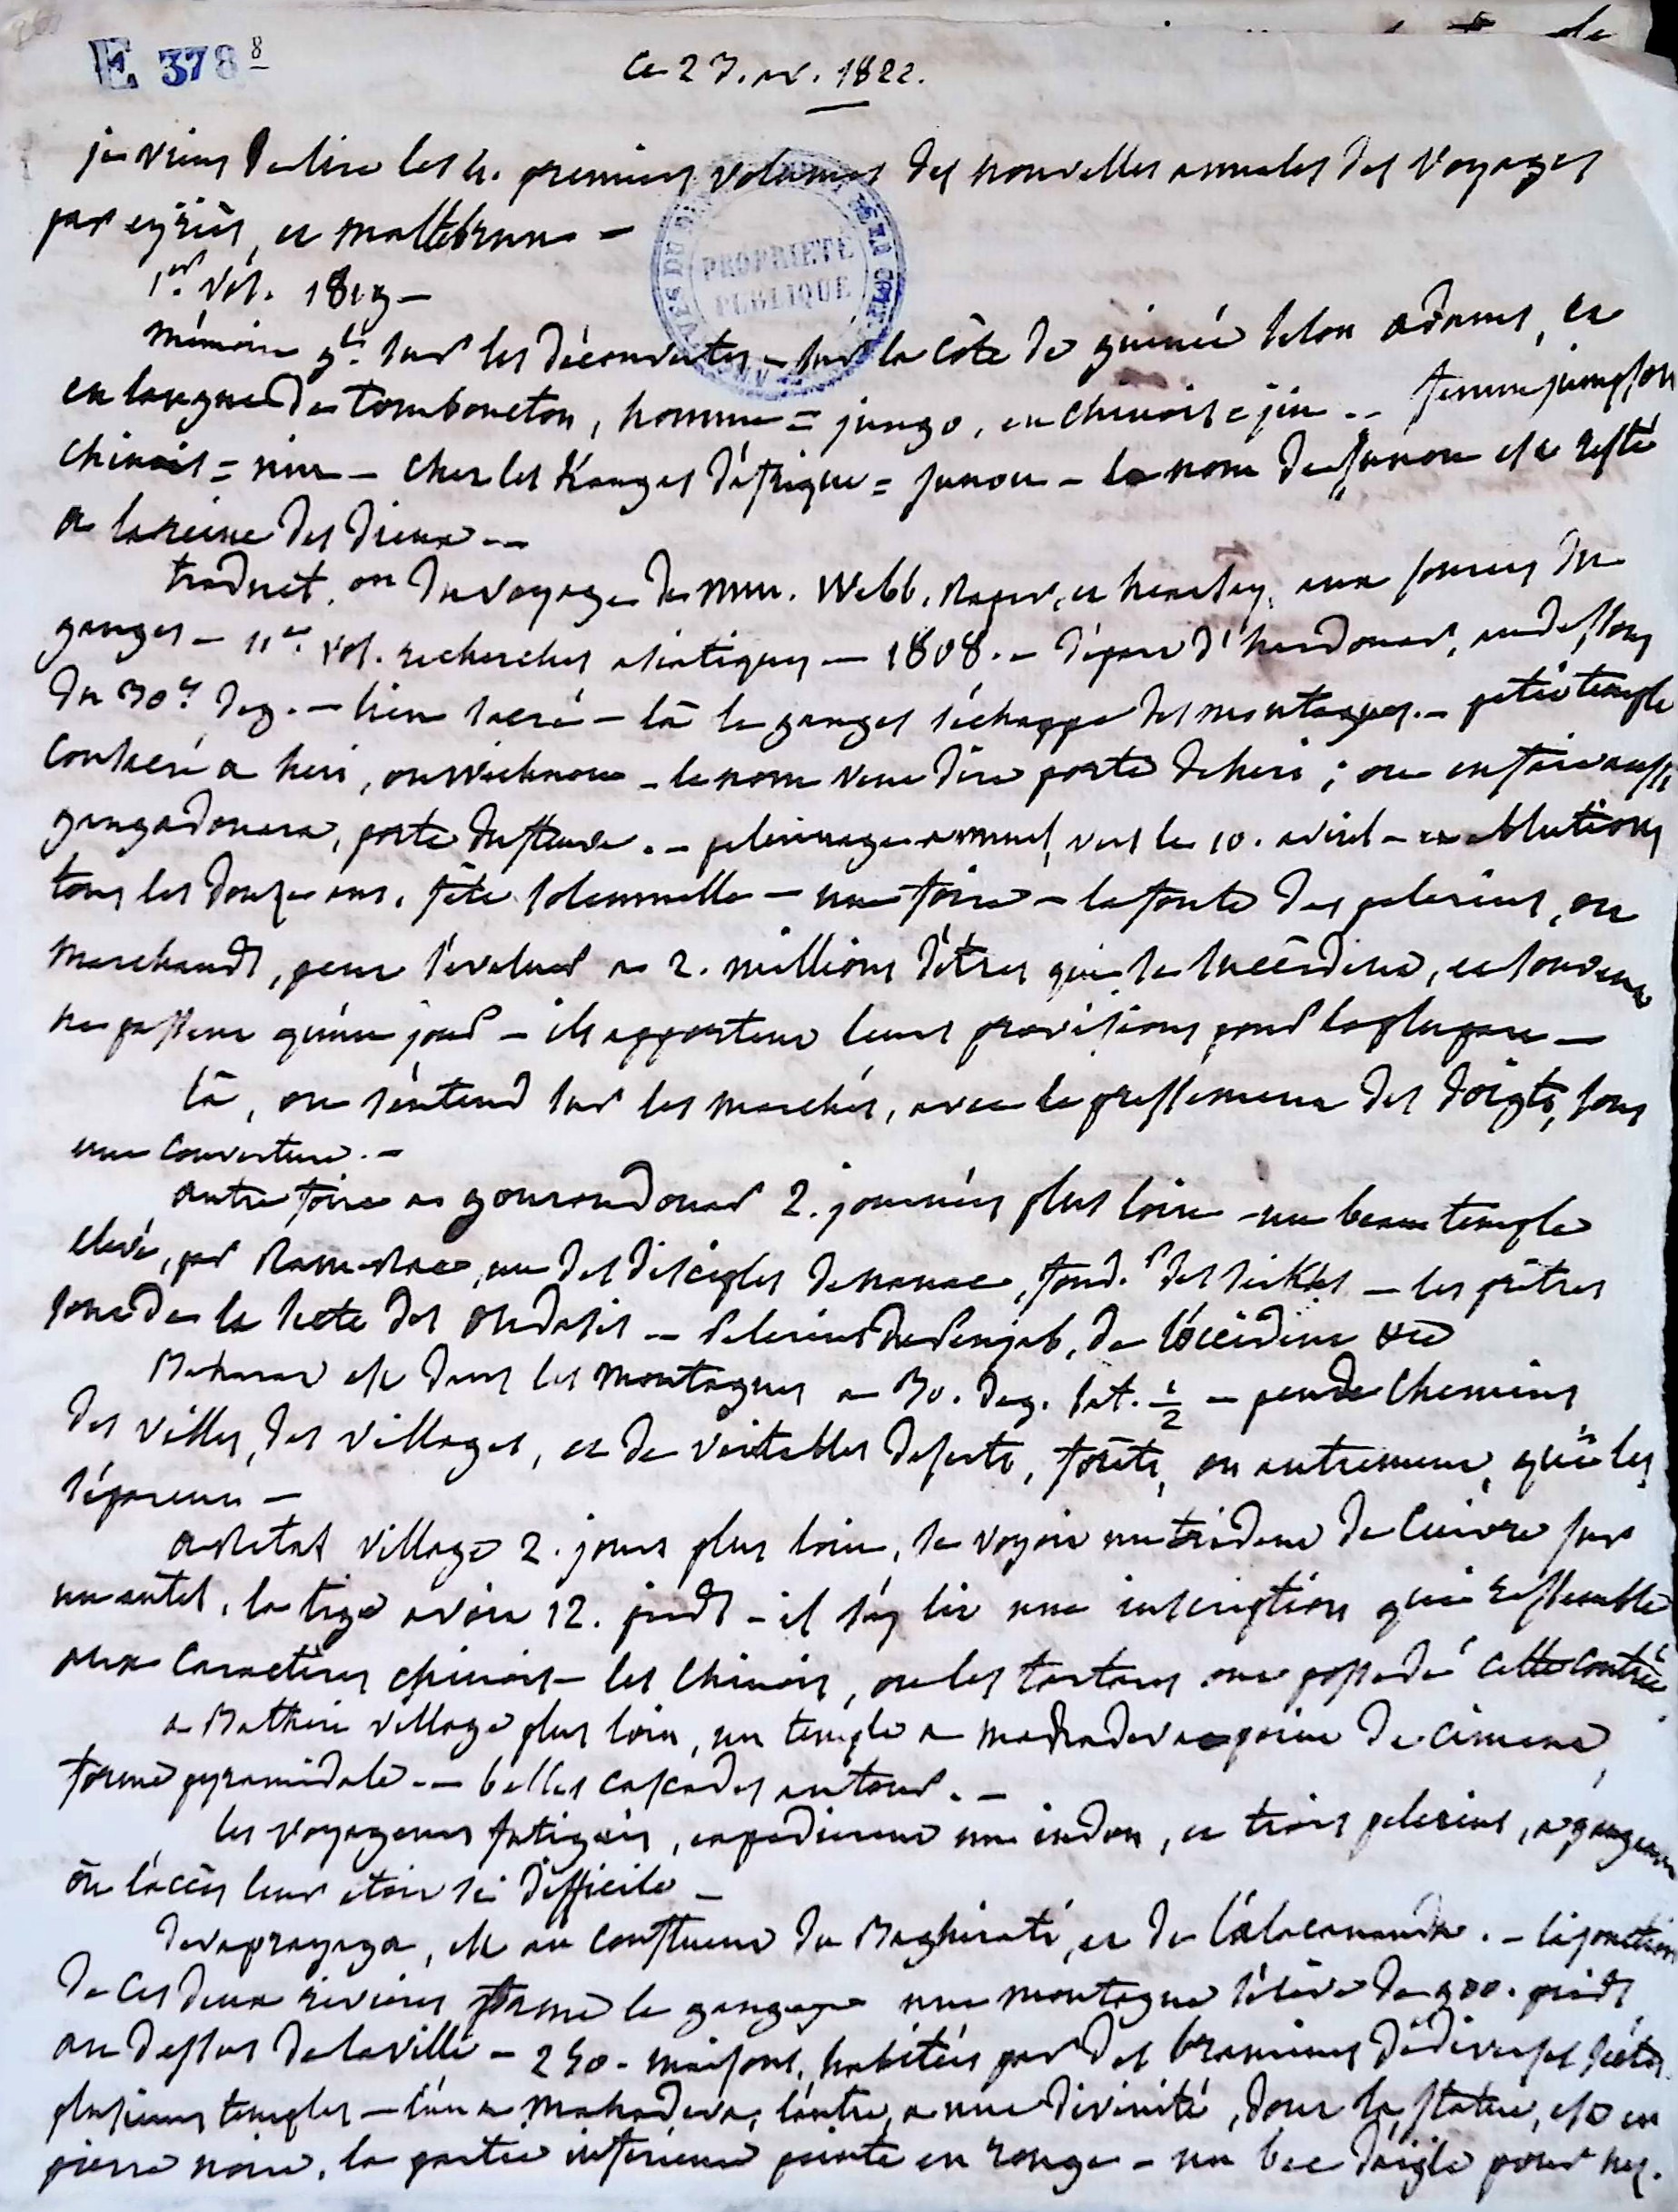 E 378 8
Ce 27. av. 1822.
je viens de lire les 4. premiers volumes des nouvelles annales des voyages
par eyriès, et maltebrun —
1er. vol. 1819 —
PROPRIÉTÉ
PUBLIQUE
mémoire gl. sur les découvertes — sur la côte de guinée selon adams, et
en langue de tombouctou, homme = jungo, en chinois = jin .. femme
chinois = niu — chez les d'afrique = junou — le nom de junon est resté
a la reine des dieux ..
traduct.on du voyage de mm. Webb, raper, et hearsay, aux sources du
ganges — 11e. vol. recherches asiatiques — 1808. — départ d'hardouar, au dessous
du 30e. deg. — lieu sacré — là le ganges s'échappe des montagnes. — petit temple
consacré a heri, ou wichnou — le nom veut dire porte de heri ; on en fait aussi
gangadouara, porte du fleuve. — pelerinage annuel, vers le 10. avril — et ablutions
tous les douze ans, fête solemnelle — une foire — la foule des pelerins, ou
marchands, peut s'evaluer a 2. millions d'êtres qui se succèdent, et souvent
ne passent qu'un jour — ils apportent leurs provisions pour la plupart —
là, on s'entend sur les marchés, avec le pressement des doigts, sous
une couverture. —
autre foire a gourondouar 2. journées plus loin — un beau temple
elevé, par Ram-Rae, un des disciples de nanac, fond.r des seikhs — les prêtres
sont de la secte des oudasis — Pelerins du Penjab, de l'occident &c
est dans les montagnes a 30. deg. lat. 1/2 — peu de chemins
des villes, des villages, et de veritables deserts, forêts, ou autrement, qui les
séparent —
a village 2. jours plus loin, se voyoit un trident de cuivre sur
un autel, la tige avoit 12. pieds — il s'y lit une inscription qui ressemble
aux caractères chinois — les chinois, ou les tartares ont possedé cette contrée.
a village plus loin, un temple a point de ciment,
forme pyramidale — belles cascades autour. —
les voyageurs fatigués, expedierent un indou, et trois pelerins, a
où l'accès leur étoit si difficile —
devaprayaga, est au confluent du Baghirati, et de l'alacananda. — la jonction
de ces deux rivières forme le ganges une montagne s'élève de 900. pieds
au dessus de la ville — 250. maisons, habitées par des bramines de diverses sectes.
plusieurs temples — l'un a mahadeva, l'autre, a une divinité, dont la statue, est en
pierre noire, la partie inferieure peinte en rouge — un bec d'aigle pour nez.